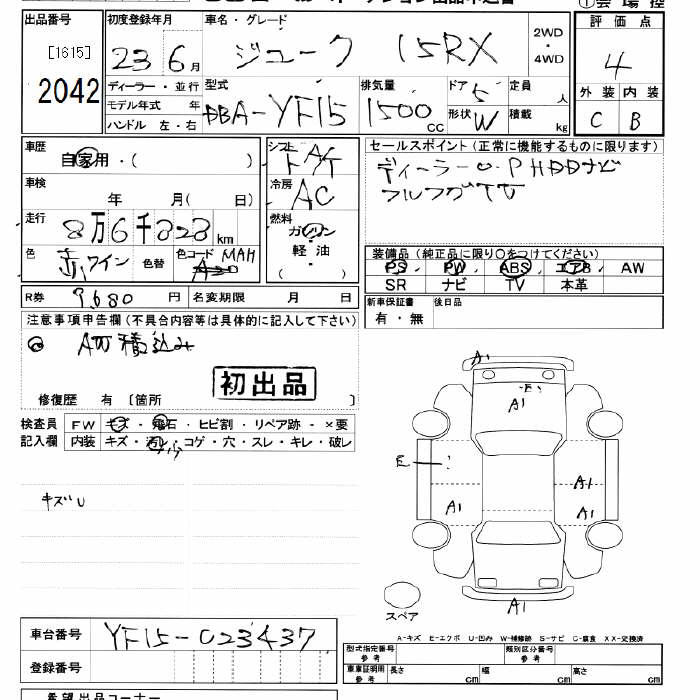 出品番号 初度登録年月 車名・グレード 評価点
[1615] 23年 6月 ジューク 15RX 2WD・4WD 4
2042 ディーラー・並行 型式 排気量 ドア 定員 外装 内装
モデル年式 年 DBA-YF15 1500cc 5 人 C B
ハンドル 左・右 形状 W 積載 kg
車歴 シフト セールスポイント(正常に機能するものに限ります)
自家用・( ) F A/T ディーラーO・P HDDナビ
車検 冷房 フルセグTV
年 月(日) AC
走行 燃料
8万6千 km ガソリン・
色 色替 色コード MAH 軽油 装備品(純正品に限り〇をつけてください)
赤 ワイン ( ) PS・PW・ABS・エアB・AW
SR ナビ TV 本革
R券 9680円 名変期限 月 日 新車保証書 後日品
注意事項申告欄(不具合内容等は具体的に記入して下さい) 有・無
AW積込み
初出品
修復歴 有 〔箇所 〕
検査員 FW キズ・飛石・ヒビ割・リペア跡・×要
記入欄 内装 キズ・汚レ・コゲ・穴・スレ・キレ・破レ
キズU
A1
E
A1
E
A1
A1 A1
A1
スペア
車台番号 YF15-023437
登録番号
A-キズ E-エクボ U-凹み W-補修跡 S-サビ C-腐食 XX-交換済
型式指定番号 参考 類別区分番号 参考
車庫証明用 参考 長さ cm 幅 cm 高さ cm
希望出品コーナー